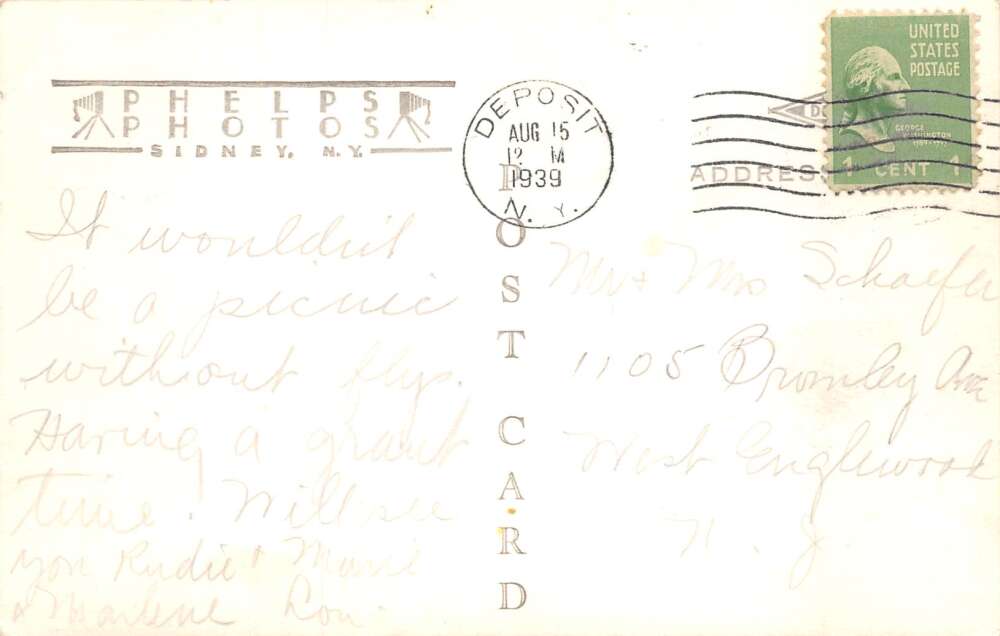 PHELPS
PHOTOS
SIDNEY, N.Y.
DEPOSIT
AUG 15
12 M
1939
N. Y.
UNITED
STATES
POSTAGE
GEORGE
WASHINGTON
1789-1797
1 CENT 1
ADDRESS
POST CARD
It wouldn't
be a picnic
without flys.
Having a grand
time. Will see
you Rudie + Marie
+ Marlene Lou
Mr + Mrs Schaefer
1105 Bromley Ave
West Englewood
N. J.